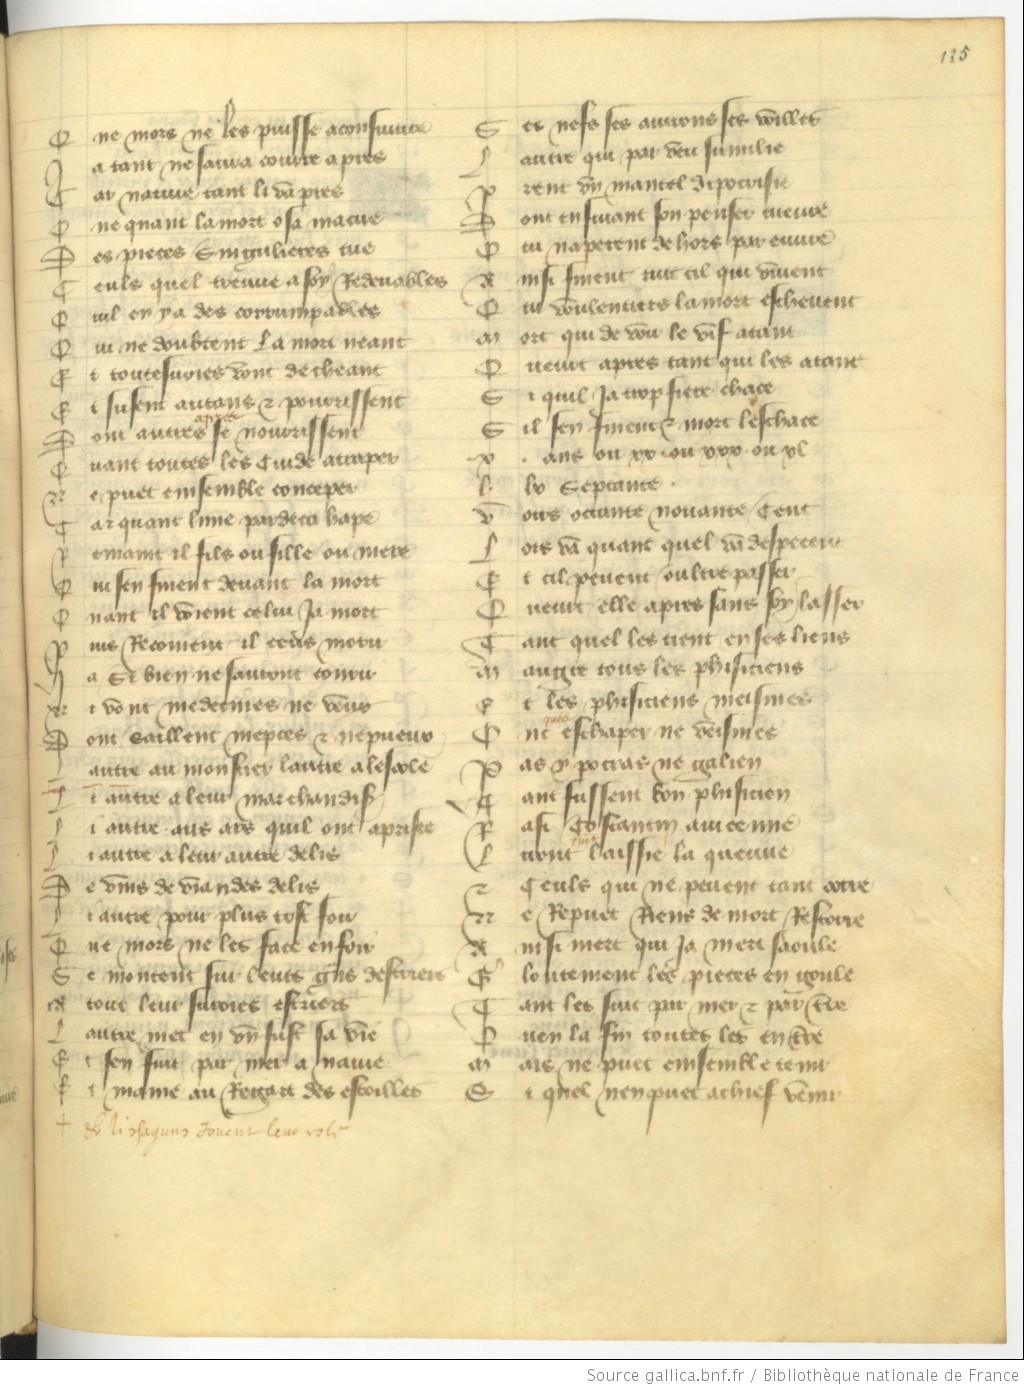 135
Q ne mors ne les puisse aconsuiure
J a tant ne saura courre apres
C ar nature tant li va pres
Q ne quant la mort o sa macue
D es pieces singulieres tue
C euls quel treuue a soy Redeuables
Q uil en y a des corrumpables
Q ui ne doubtent la mort neant
E t toutesuoies vont decheant
E t susent autans & pourrissent
D ont autres se nourrissent
apres
Q uant toutes les Cuide atraper
N e puet ensemble conceper
C ar quant lune pardeca hape
R emaint il fils ou fille ou mere
Q ui sen fuient deuant la mort
Q uant il voient celui Ja mort
P uis Recouient il ceus morir
J a si bien ne sauront courir
N i vont medecines ne veus
D ont saillent nieces & nepueux
L autre au moustier lautre a lescole
L i autre a leur marchandise
L i autre aus ars quil ont aprises
L i autre a leur autre delis
D e vins de viandes de lis
L i autre pour plus tost fouir
Q ue mors ne les face enfoir
S e montent sur leurs grans destriers
A tout leur suroies estriers
L autre met en vn fust sa vie
E t sen fuit par mer a nauie
E t maine au Regart des estoilles
+ & li chaquns Jouent leur role
S es nefs ses auirons ses voilles
L autre qui par veu sumilie
P rent vn mantel dipocrisie
D ont en fuiant son penser cueuure
Q ui naperent dehors par euure
A insi fuient tuit cil qui viuent
Q ui voulentiers la mort escheuent
M ort qui de noir le vis a taint
Q ueurt apres tant qui les ataint
S i quil Ja trop fiere chace
S il sen fuient & mort les chace
X . ans ou xx. ou xxx. ou xl
L. lx Septante .
V oirs octante nouante Cent
L ors va quant quel va despecent
E t cil peuent oultre passer
Q ueurt elle apres sans soy lasser
T ant quel les tient en ses liens
M augre tous les phisiciens
E t les phisiciens meismes
O nc eschaper ne veismes
quas
P as ypocras ne galien
T ant fussent bon phisicien
R asi Constantin auicenne
L iront laissie la queuue
tuit
& Ceuls qui ne peuent tant corre
N e Repuet Riens de mort Rescorre
A insi mort qui Ja niert saoule
G loutement les pieces engoule
T ant les suit par mer & par terre
Q uen la fin toutes les enterre
M ais ne puet ensemble tenir
S i quel nen puet a chief venir
Source gallica.bnf.fr / Bibliothèque nationale de France